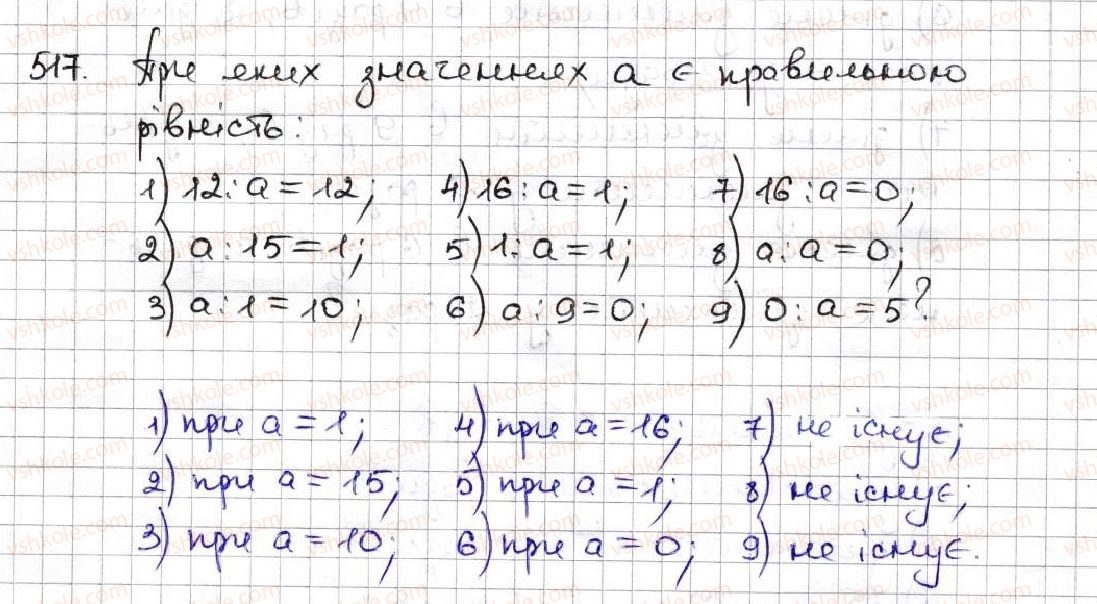 517. При яких значеннях a є правильною
рівність:
1) 12 : a = 12; 4) 16 : a = 1; 7) 16 : a = 0;
2) a : 15 = 1; 5) 1 : a = 1; 8) a : a = 0;
3) a : 1 = 10; 6) a : 9 = 0; 9) 0 : a = 5?
1) при a = 1; 4) при a = 16; 7) не існує;
2) при a = 15; 5) при a = 1; 8) не існує;
3) при a = 10; 6) при a = 0; 9) не існує.